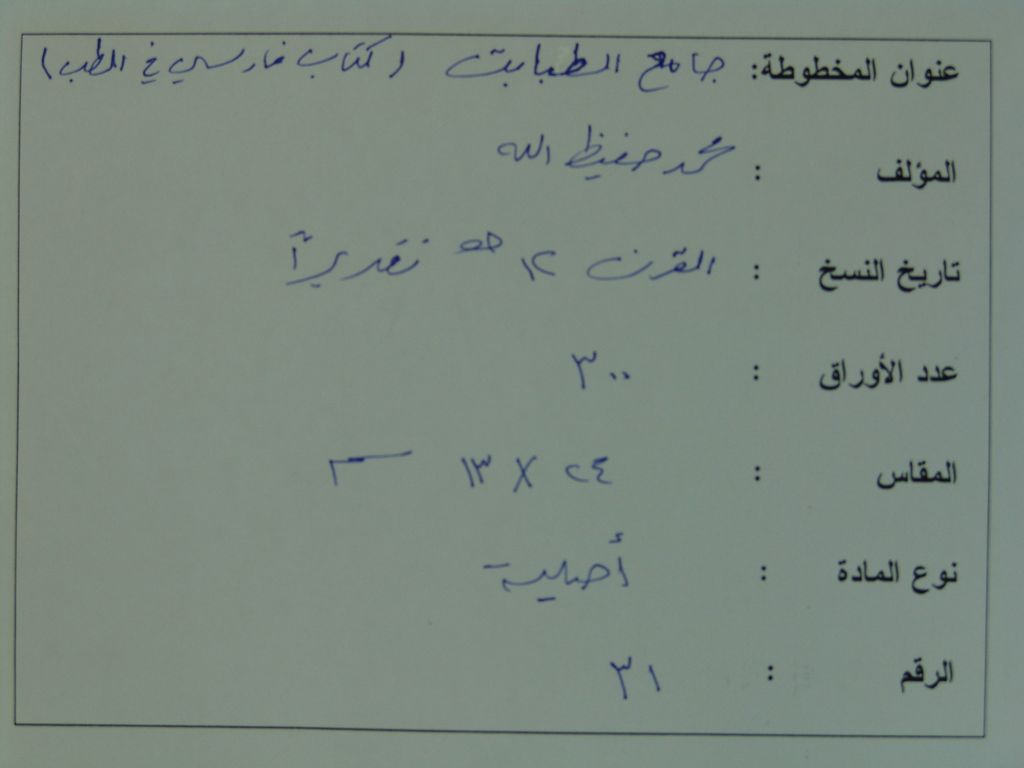 عنوان المخطوطة: جامع الطبابت (كتاب فارسي في الطب)
المؤلف : محمد حفيظ الله
تاريخ النسخ : القرن ١٢ هـ تقديراً
عدد الأوراق : ٣٠٠
المقاس : ٢٤ X ١٣ سم
نوع المادة : أصلية
الرقم : ٣١